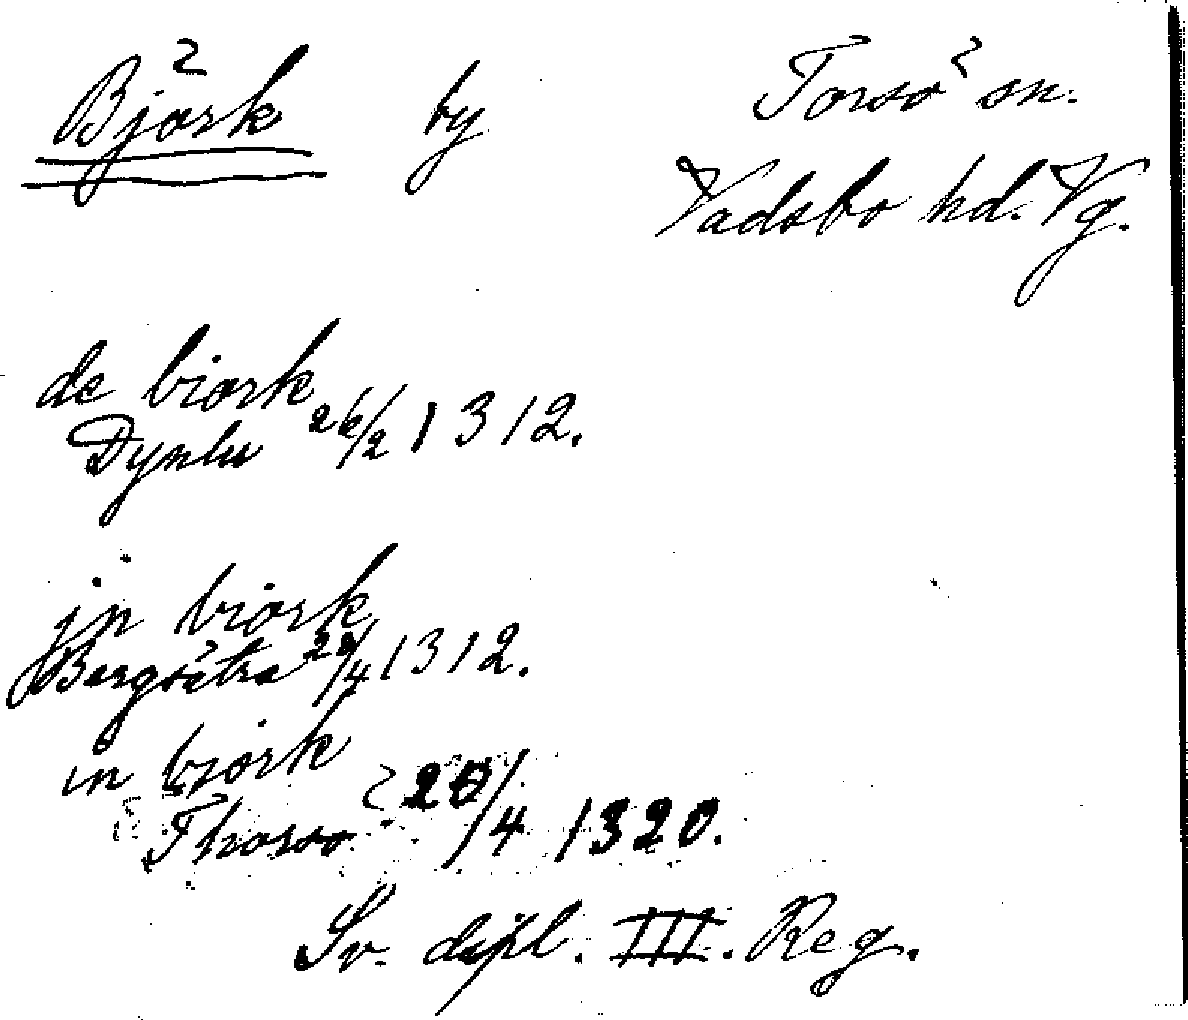 Björk by Torsö sn.
Vadsbo hd. Vg.
de biork
Dynlu 26/2 1312.
jn biork
Bergsätra 28/4 1312.
in biork
Thorso 20/4 1320.
Sv. dipl. III. Reg.